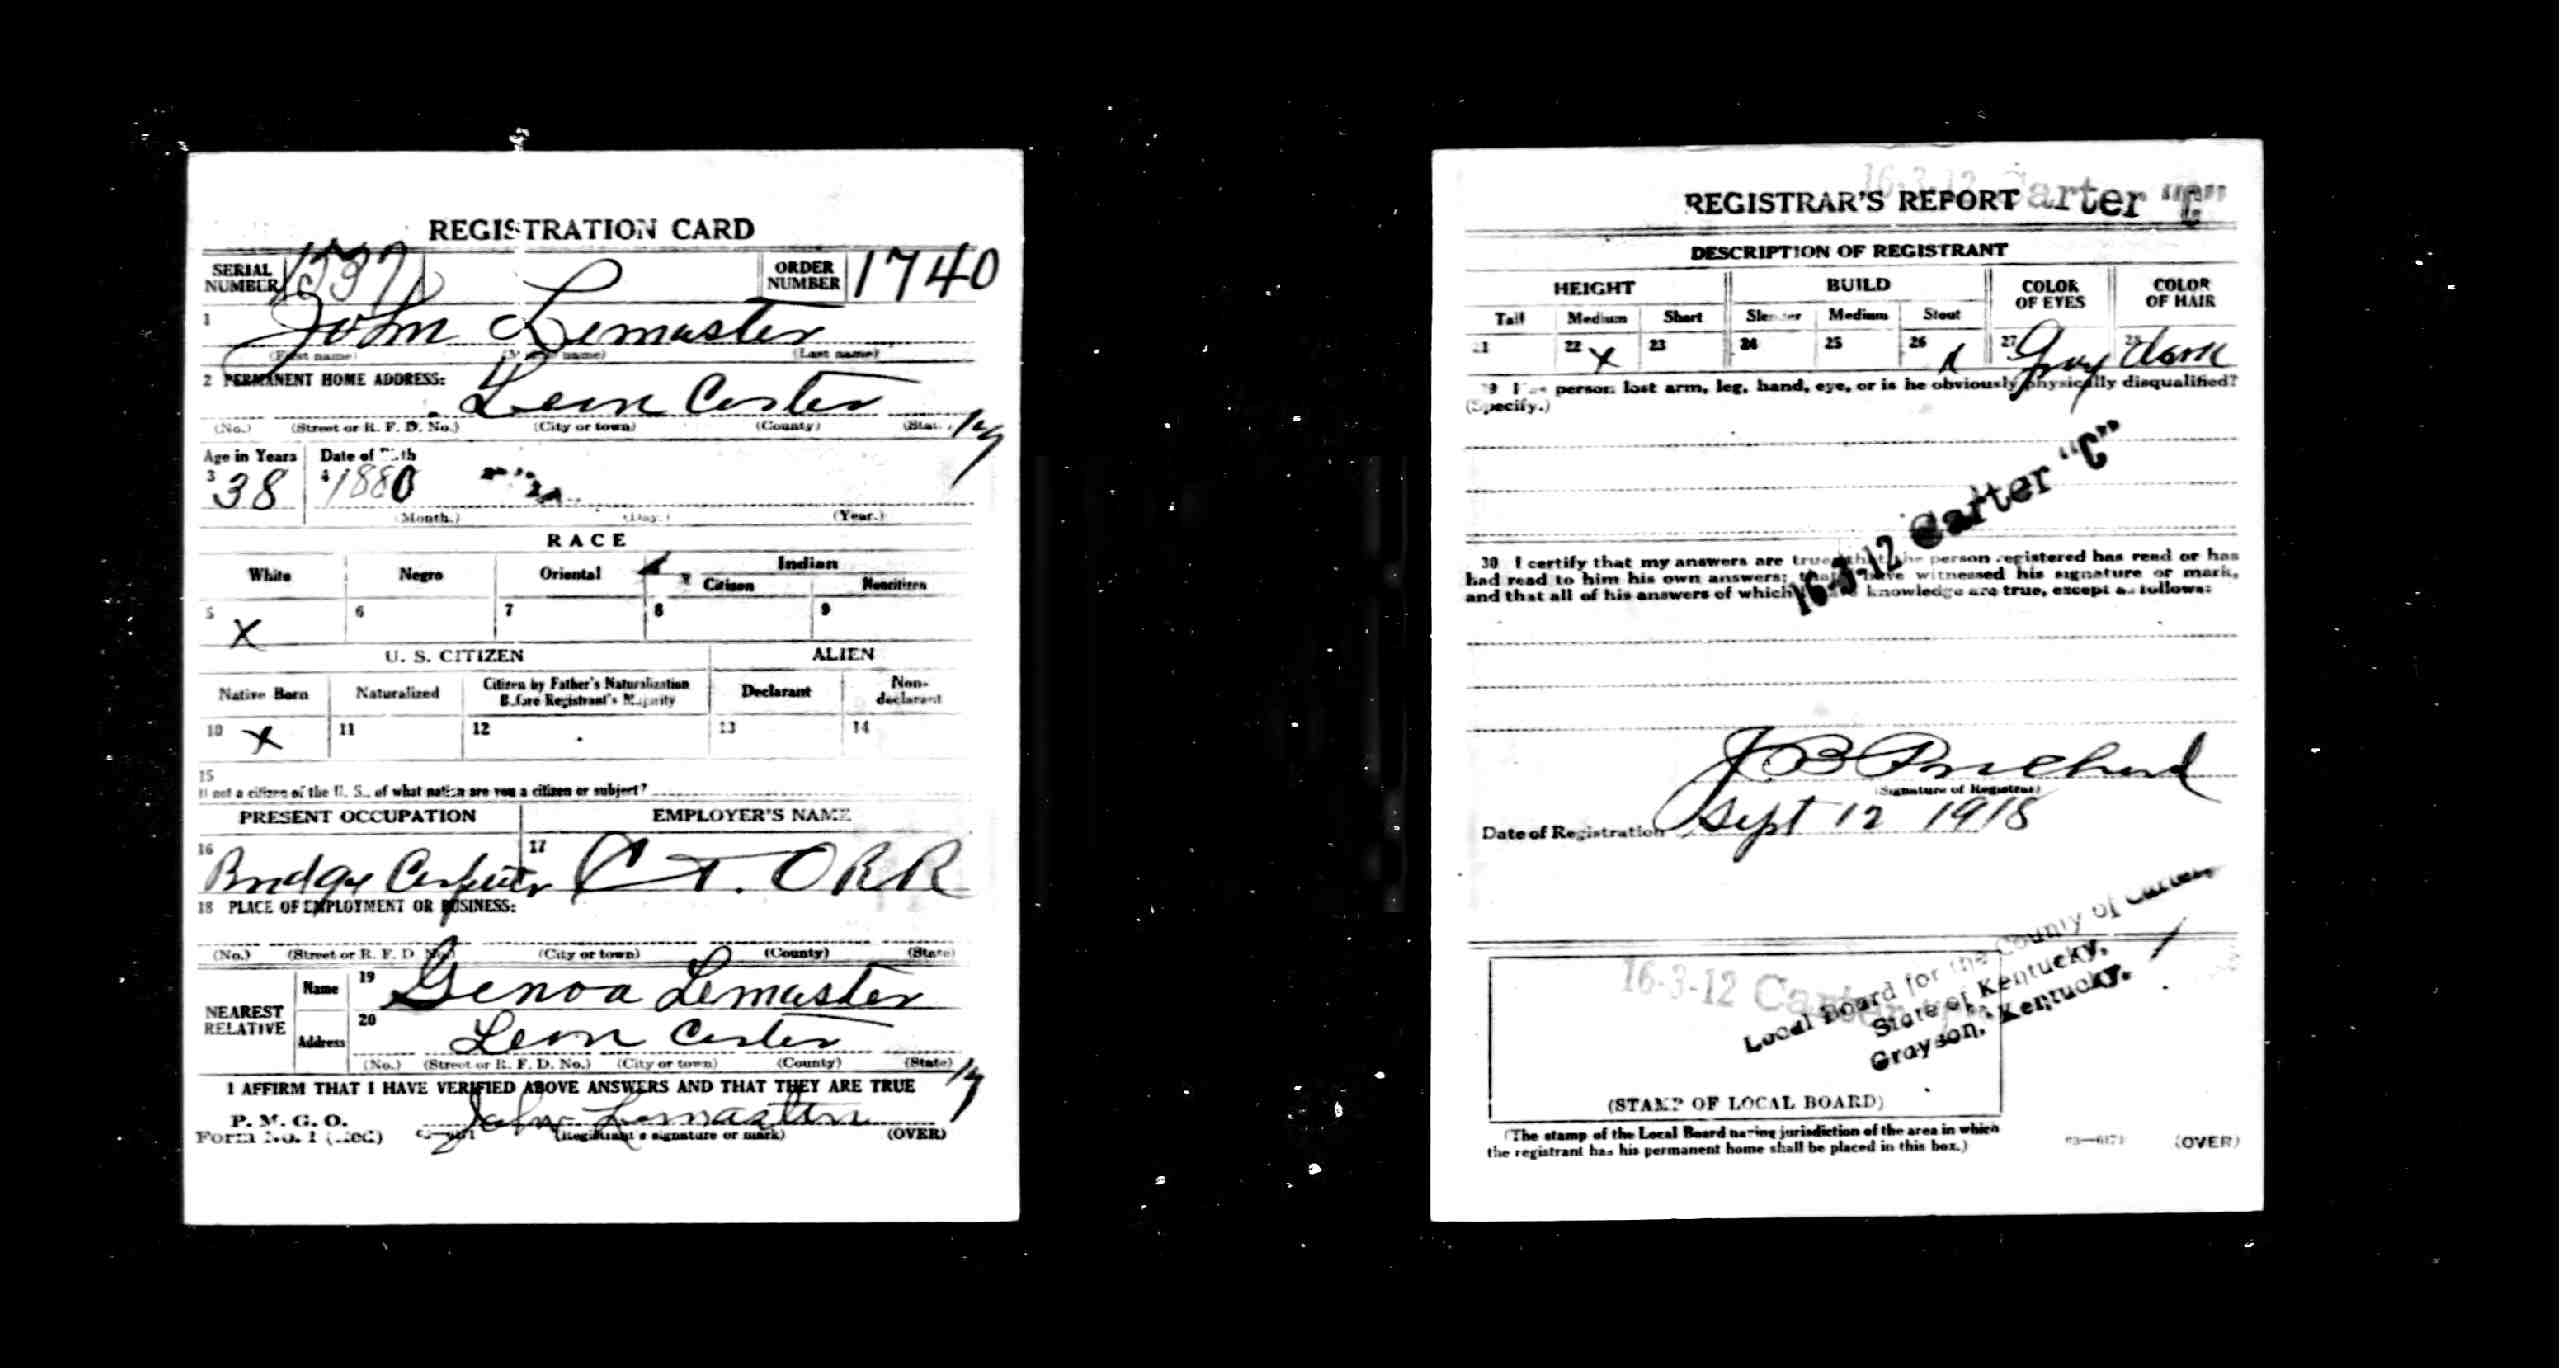 REGISTRATION CARD
SERIAL NUMBER 1537 ORDER NUMBER 1740
1 John Lemaster
(First name) (Middle name) (Last name)
2 PERMANENT HOME ADDRESS:
Leon Carter Ky
(No.) (Street or R. F. D. No.) (City or town) (County) (State)
Age in Years Date of Birth
3 38 4 1880
(Month.) (Day.) (Year.)
RACE
White Negro Oriental Indian
Citizen Noncitizen
5 X 6 7 8 9
U. S. CITIZEN ALIEN
Native Born Naturalized Citizen by Father's Naturalization Before Registrant's Majority Declarant Non-declarant
10 X 11 12 13 14
15
If not a citizen of the U. S., of what nation are you a citizen or subject?
PRESENT OCCUPATION EMPLOYER'S NAME
16 Bridge Carpenter 17 C T. ORR
18 PLACE OF EMPLOYMENT OR BUSINESS:
(No.) (Street or R. F. D. No.) (City or town) (County) (State)
NEAREST RELATIVE Name 19 Genoa Lemaster
Address 20 Leon Carter Ky
(No.) (Street or R. F. D. No.) (City or town) (County) (State)
I AFFIRM THAT I HAVE VERIFIED ABOVE ANSWERS AND THAT THEY ARE TRUE
P. M. G. O.
Form No. 1 (Red) John Lemaster
(Registrant's signature or mark) (OVER)
16-3-12 Carter "C"
REGISTRAR'S REPORT
DESCRIPTION OF REGISTRANT
HEIGHT BUILD COLOR OF EYES COLOR OF HAIR
Tall Medium Short Slender Medium Stout
21 22 X 23 24 25 26 X 27 Gray 28 dark
29 Has person lost arm, leg, hand, eye, or is he obviously physically disqualified?
(Specify.)
16-3-12 Carter "C"
30 I certify that my answers are true; that the person registered has read or has
had read to him his own answers; that I have witnessed his signature or mark,
and that all of his answers of which I have knowledge are true, except as follows:
J B Prichard
(Signature of Registrar)
Date of Registration Sept 12 1918
Local Board for the County of Carter,
State of Kentucky,
Grayson, Kentucky.
16-3-12 Carter
(STAMP OF LOCAL BOARD)
(The stamp of the Local Board having jurisdiction of the area in which
the registrant has his permanent home shall be placed in this box.)
(OVER)